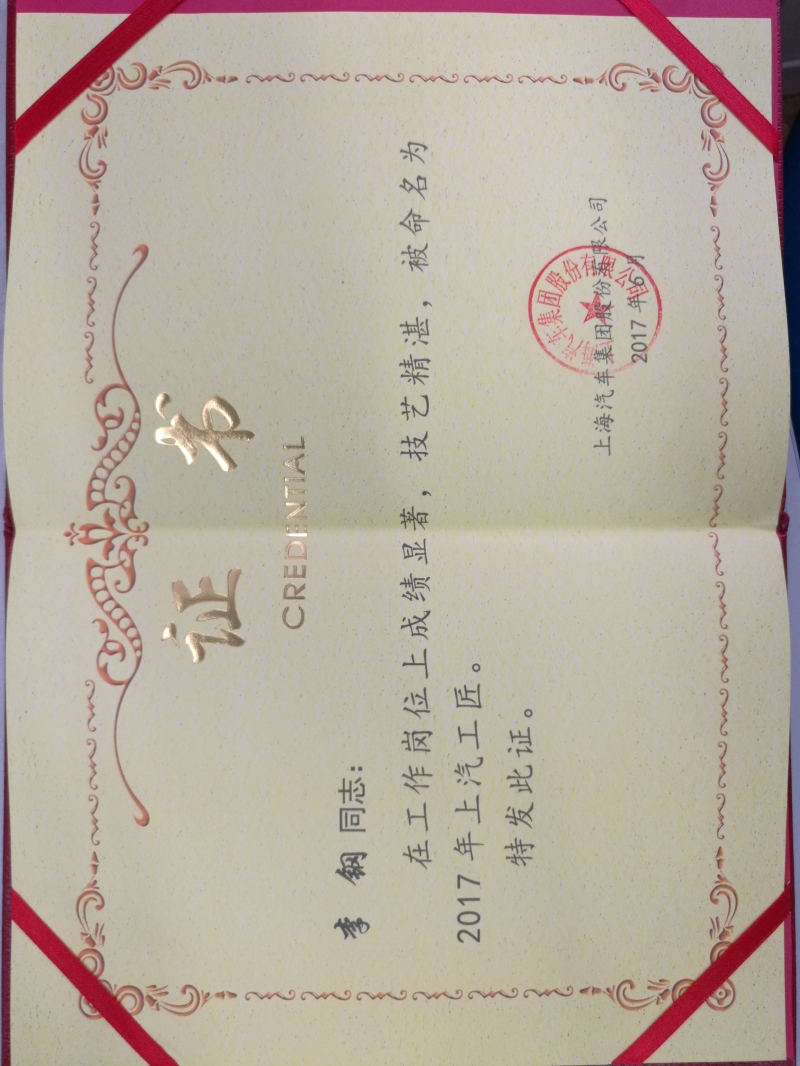 证书
CREDENTIAL
李钢 同志：
在工作岗位上成绩显著，技艺精湛，被命名为
2017年上汽工匠。
特发此证。
上海汽车集团股份有限公司
2017年6月
汽车集团股份有限公司